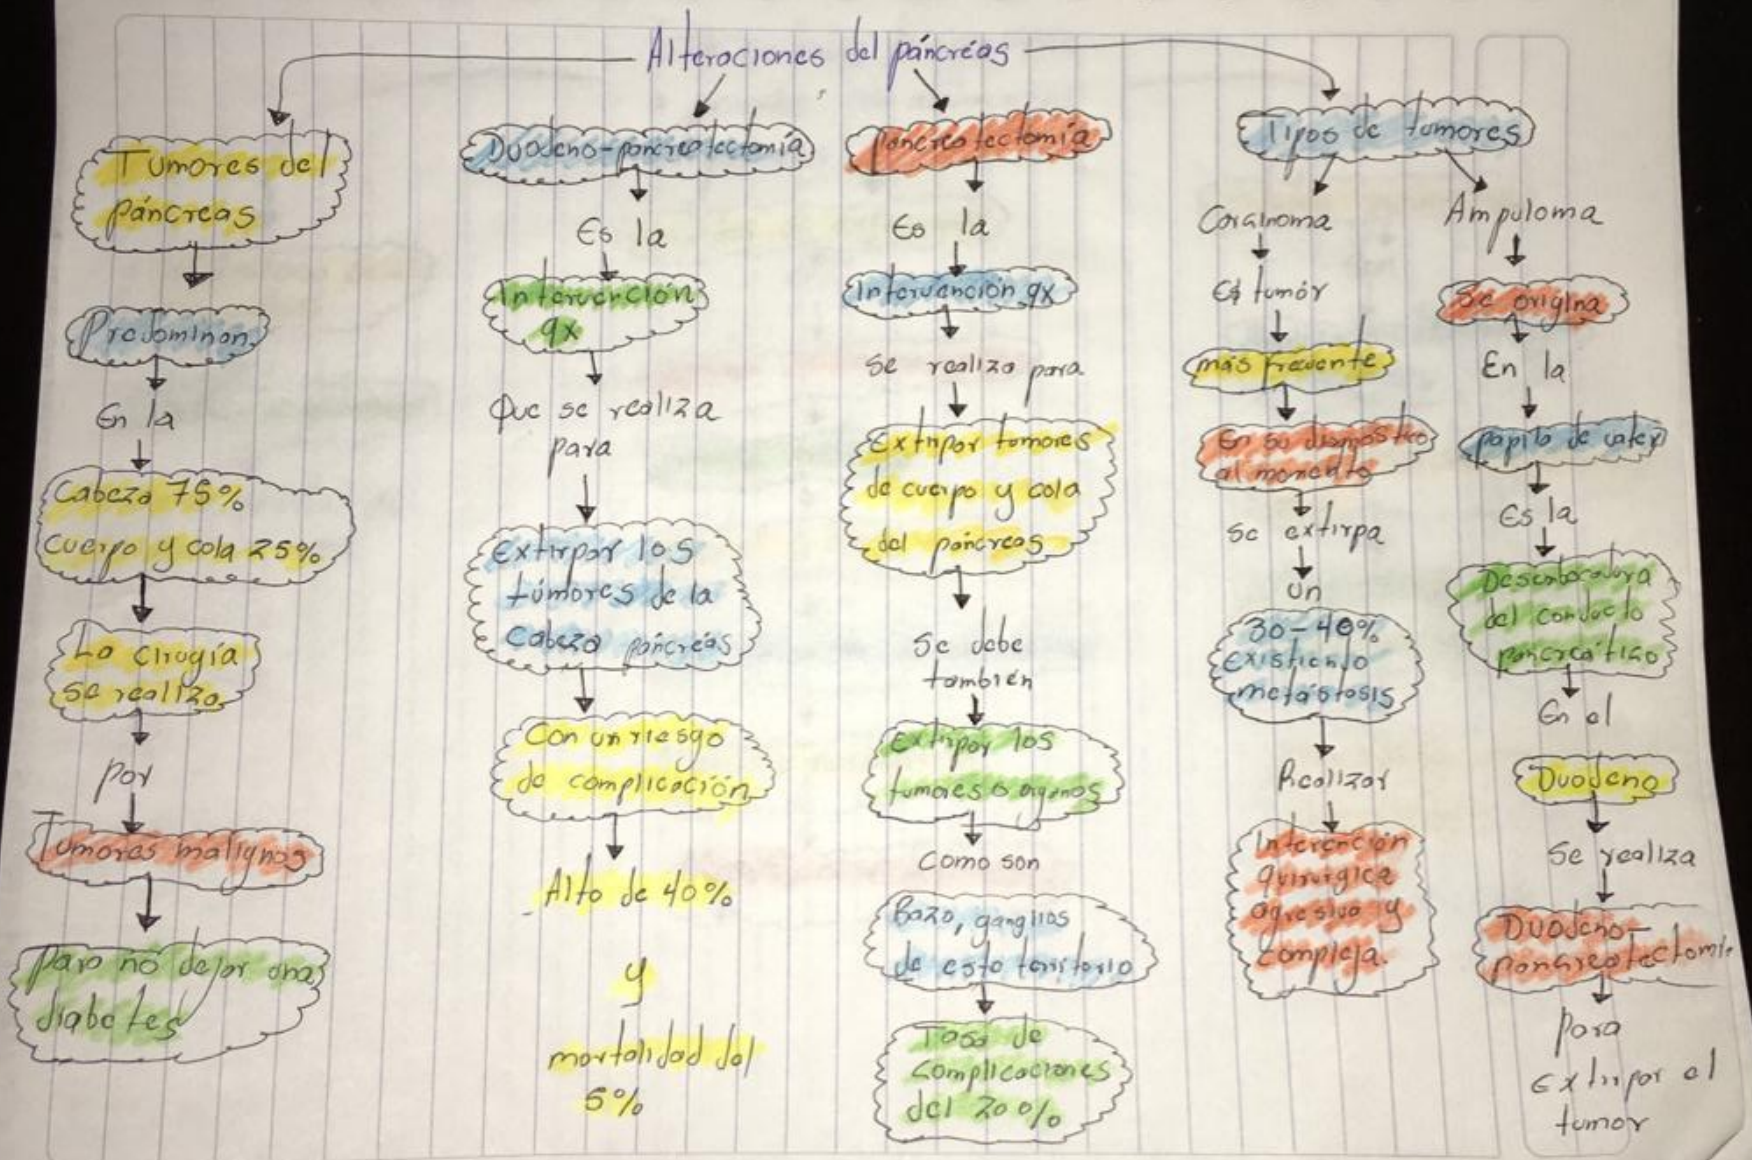 Alteraciones del páncreas
Tumores del
páncreas
Predominan
En la
Cabeza 75%
cuerpo y cola 25%
La cirugía
se realiza
por
Tumores malignos
Para no dejar una
diabetes
Duodeno-pancreatectomía
Es la
Intervención
qx
Que se realiza
para
Extirpar los
túmores de la
Cabeza páncreas
Con un riesgo
de complicación
Alto de 40%
y
mortalidad del
5%
Pancreatectomía
Es la
Intervención qx
Se realiza para
Extirpar tumores
de cuerpo y cola
del páncreas
Se debe
también
Extirpar los
tumores o organos
Como son
Bazo, ganglios
de esto territorio
Tasa de
complicaciones
del 20%
Tipos de tumores
Es tumór
más frecuente
En su diagnostico
al momento
Se extirpa
un
30-40%
existiendo
metástasis
Realizar
quirurgica
agresiva y
compleja.
Ampuloma
Se origina
En la
papila de vater
Es la
del conducto
pancreático
En el
Duodeno
Se realiza
Duodeno-
pancreatectomía
para
Extirpar el
tumor